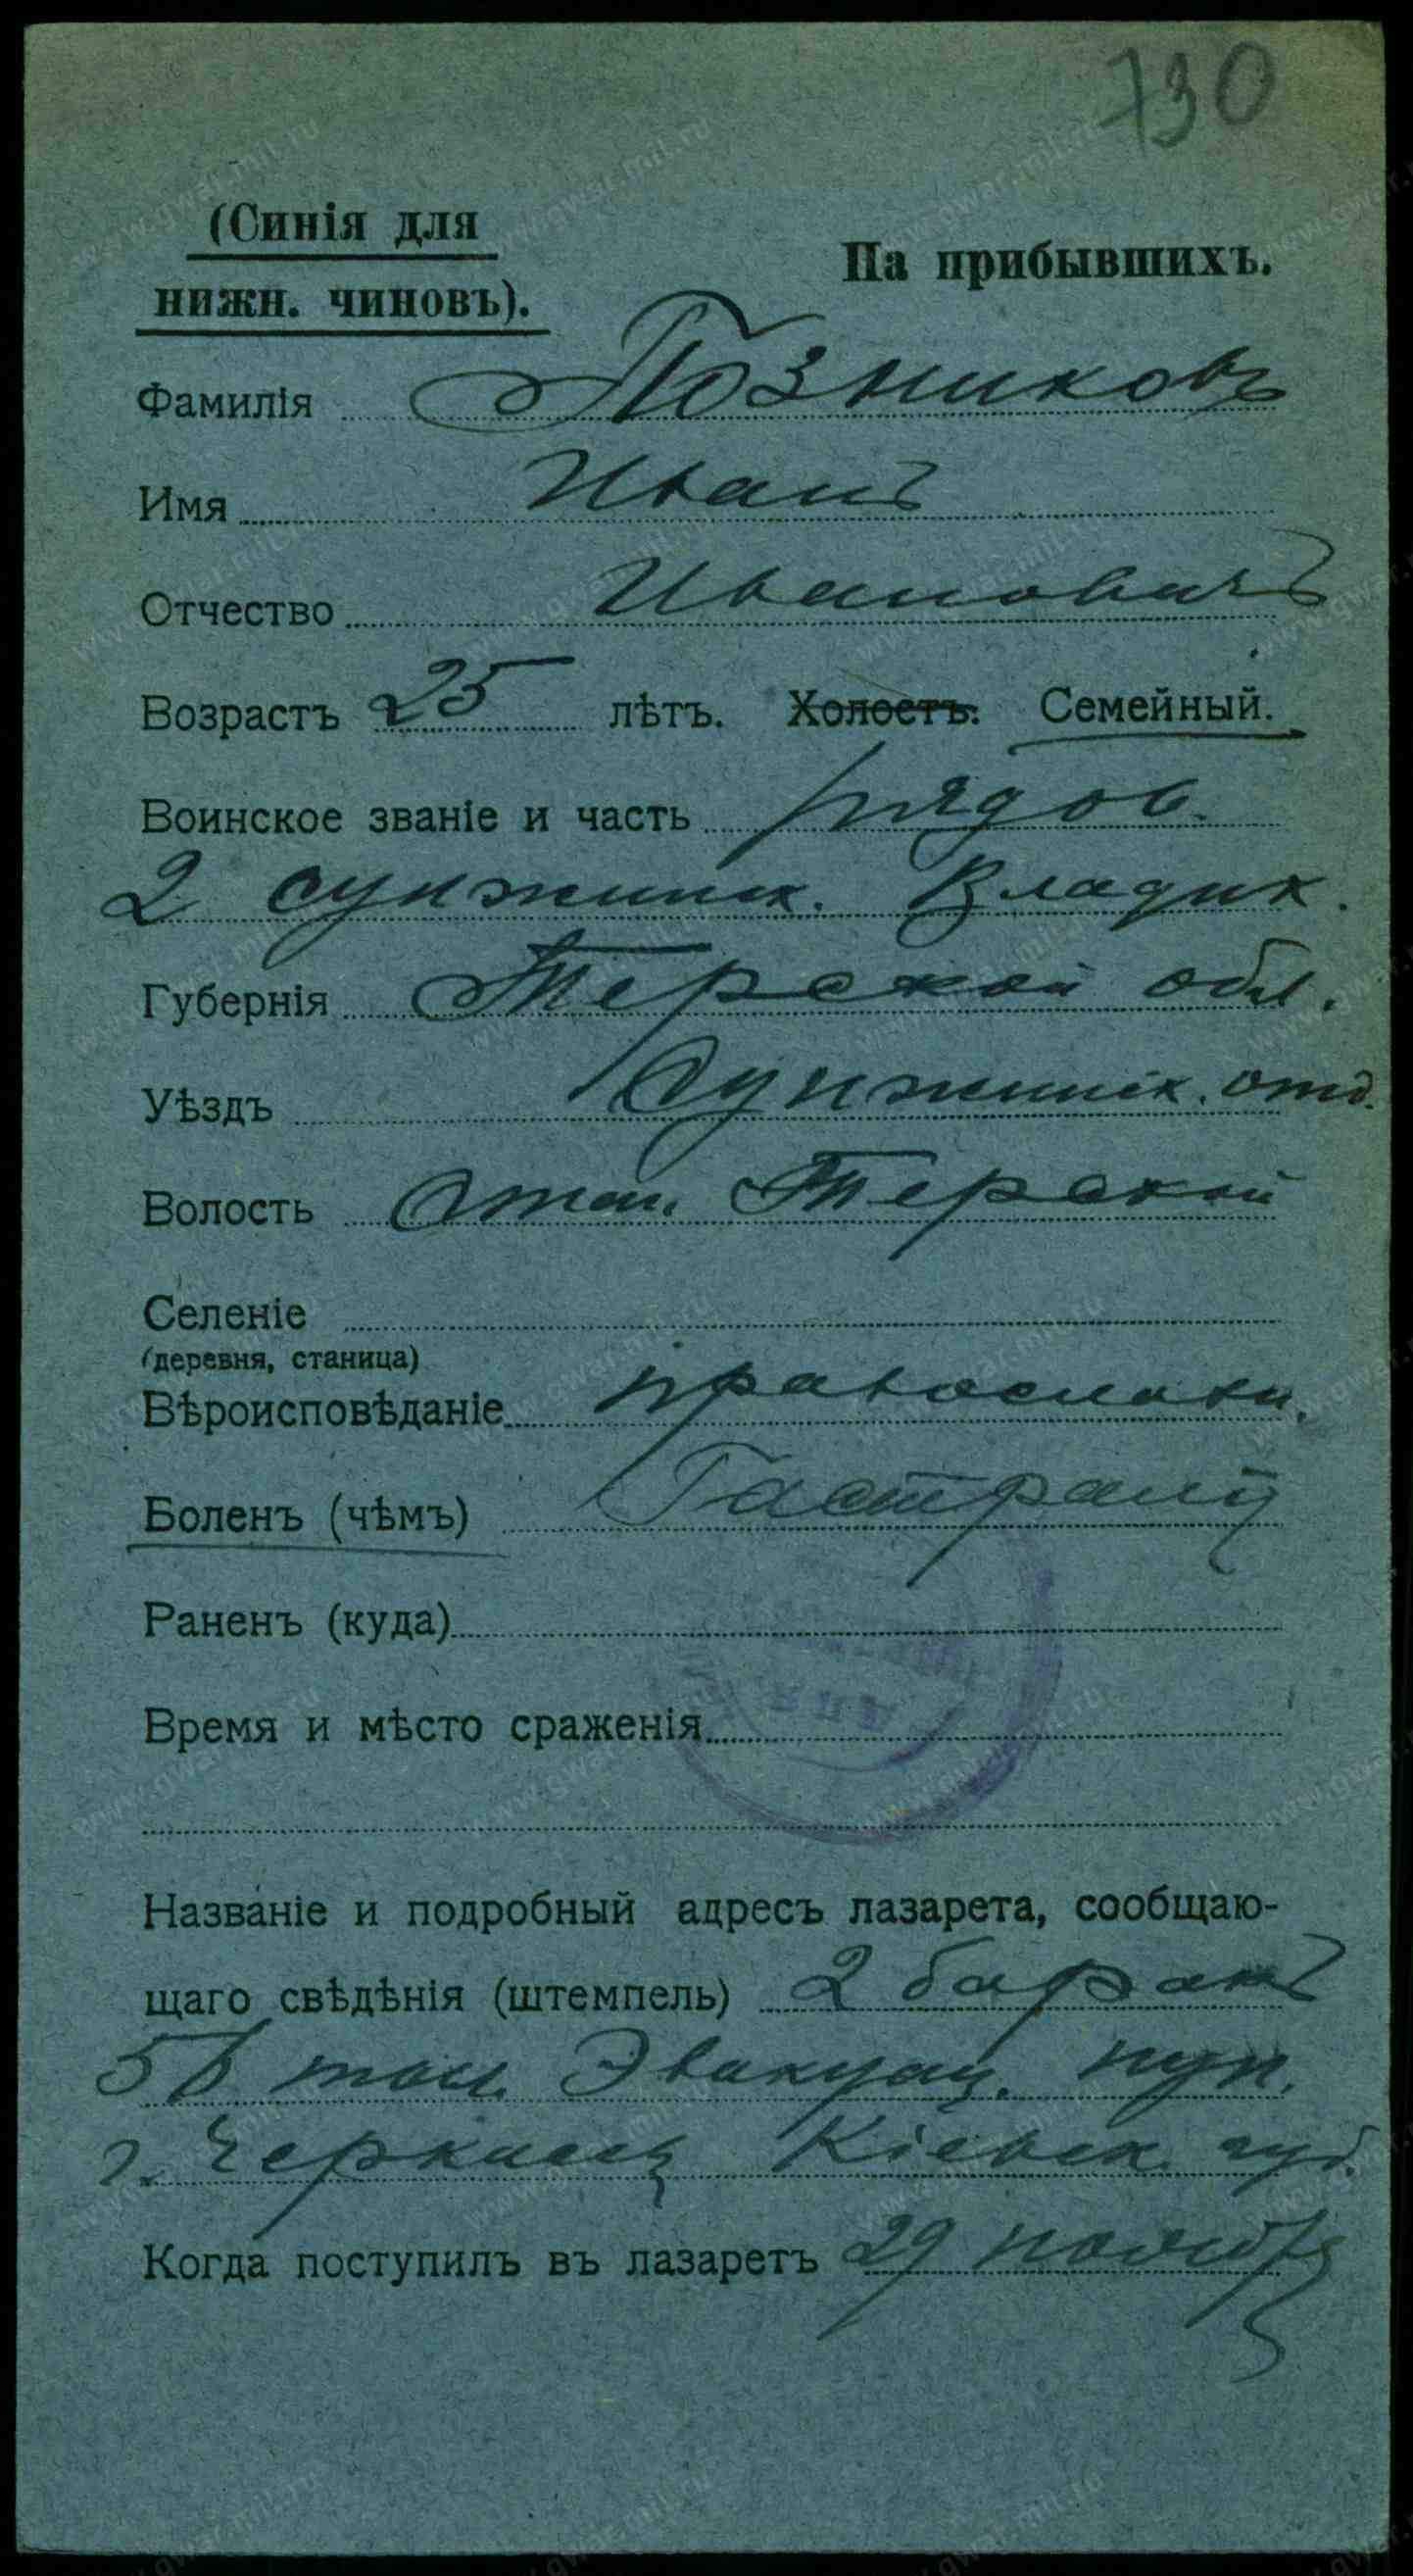 730
(Синія для
нижн. чиновъ).
На прибывшихъ.
Фамилія Позниковъ
Имя Иванъ
Отчество Ивановичъ
Возрастъ 25 лѣтъ. Холостъ. Семейный.
Воинское званіе и часть рядов.
2 сунженск. Владик.
Губернія Терской обл.
Уѣздъ Сунженск. отд.
Волость Стан. Терской
Селеніе
(деревня, станица)
Вѣроисповѣданіе православн.
Боленъ (чѣмъ)
Раненъ (куда)
Время и мѣсто сраженія
Названіе и подробный адресъ лазарета, сообщаю-
щаго свѣдѣнія (штемпель) 2 баракъ
Эвакуац. пун.
г. Черкассы Кіевск. губ.
Когда поступилъ въ лазаретъ 29 ноября